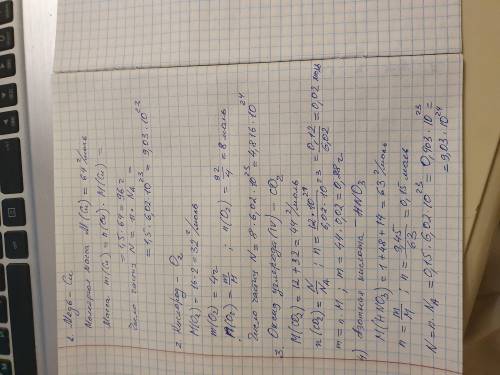 1. Медь Cu
Молярная масса M(Cu) = 64 г/моль
Масса m(Cu) = n(Cu) · M(Cu) =
= 1,5 · 64 = 96 г
Число частиц N = n · NA =
= 1,5 · 6,02 · 10²³ = 9,03 · 10²³
2. Кислород O₂
M(O₂) = 16 · 2 = 32 г/моль
m(O₂) = 4 г
n(O₂) = m/M ; n(O₂) = 32/4 = 8 моль
Число частиц N = 8 · 6,02 · 10²³ = 4,816 · 10²⁴
3. Оксид углерода (IV) – CO₂
M(CO₂) = 12 + 32 = 44 г/моль
n(CO₂) = N/NA ; n = 12 · 10²¹/6,02 · 10²³ = 0,12/6,02 = 0,02 моль
m = n · M ; m = 44 · 0,02 = 0,88 г
4) Азотная кислота HNO₃
M(HNO₃) = 1 + 48 + 14 = 63 г/моль
n = m/M ; n = 9,45/63 = 0,15 моль
N = n · NA = 0,15 · 6,02 · 10²³ = 0,903 · 10²³ =
= 9,03 · 10²⁴